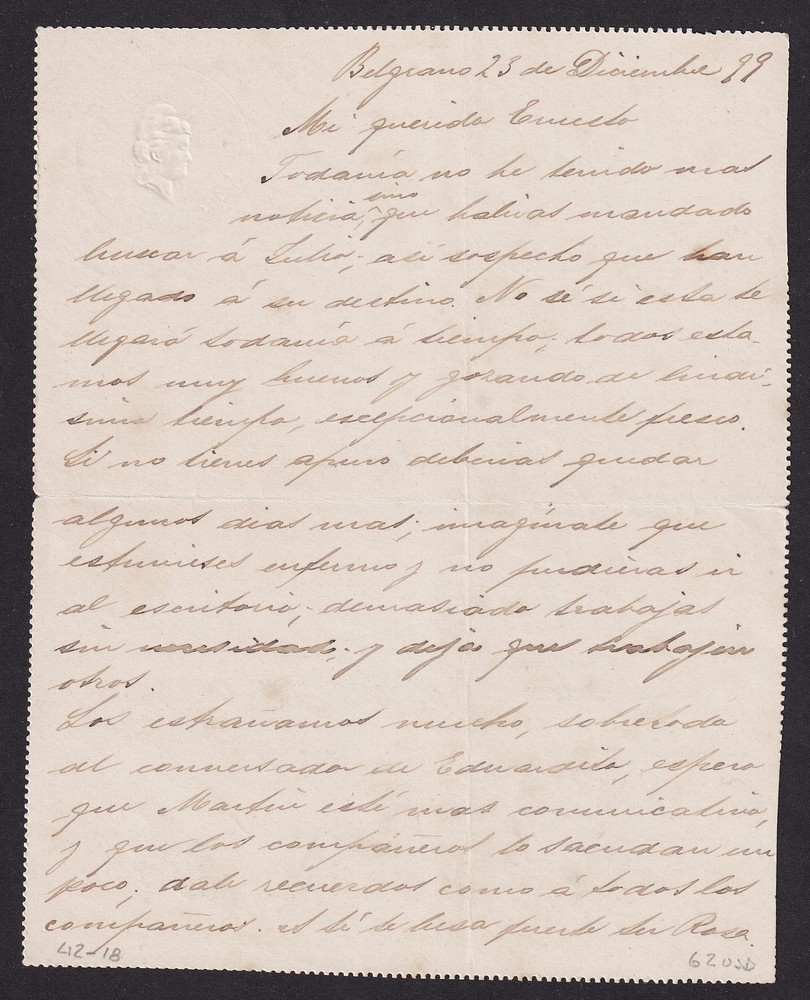 Belgrano 23 de Diciembre 99
Mi querido Ernesto
Todavia no he tenido mas
noticia, sino que habias mandado
buscar á Julio, asi sospecho que han
llegado á su destino. No sé si esta te
llegará todavia á tiempo; todos esta-
mos muy buenos y gozando de lindi-
simo tiempo, escepcionalmente fresco.
Si no tienes apuro deberias quedar
algunos dias mas; imagínate que
estuvieses enfermo y no pudieras ir
al escritorio; demasiado trabajas
sin necesidad, y deja que trabajen
otros.
Los estrañamos mucho, sobretodo
al conversador de Eduardito, espero
que Martin esté mas comunicativo,
y que los compañeros lo sacudan un
poco; dale recuerdos como á todos los
compañeros. A ti te besa fuerte tu Rosa.
412-18
62 USD